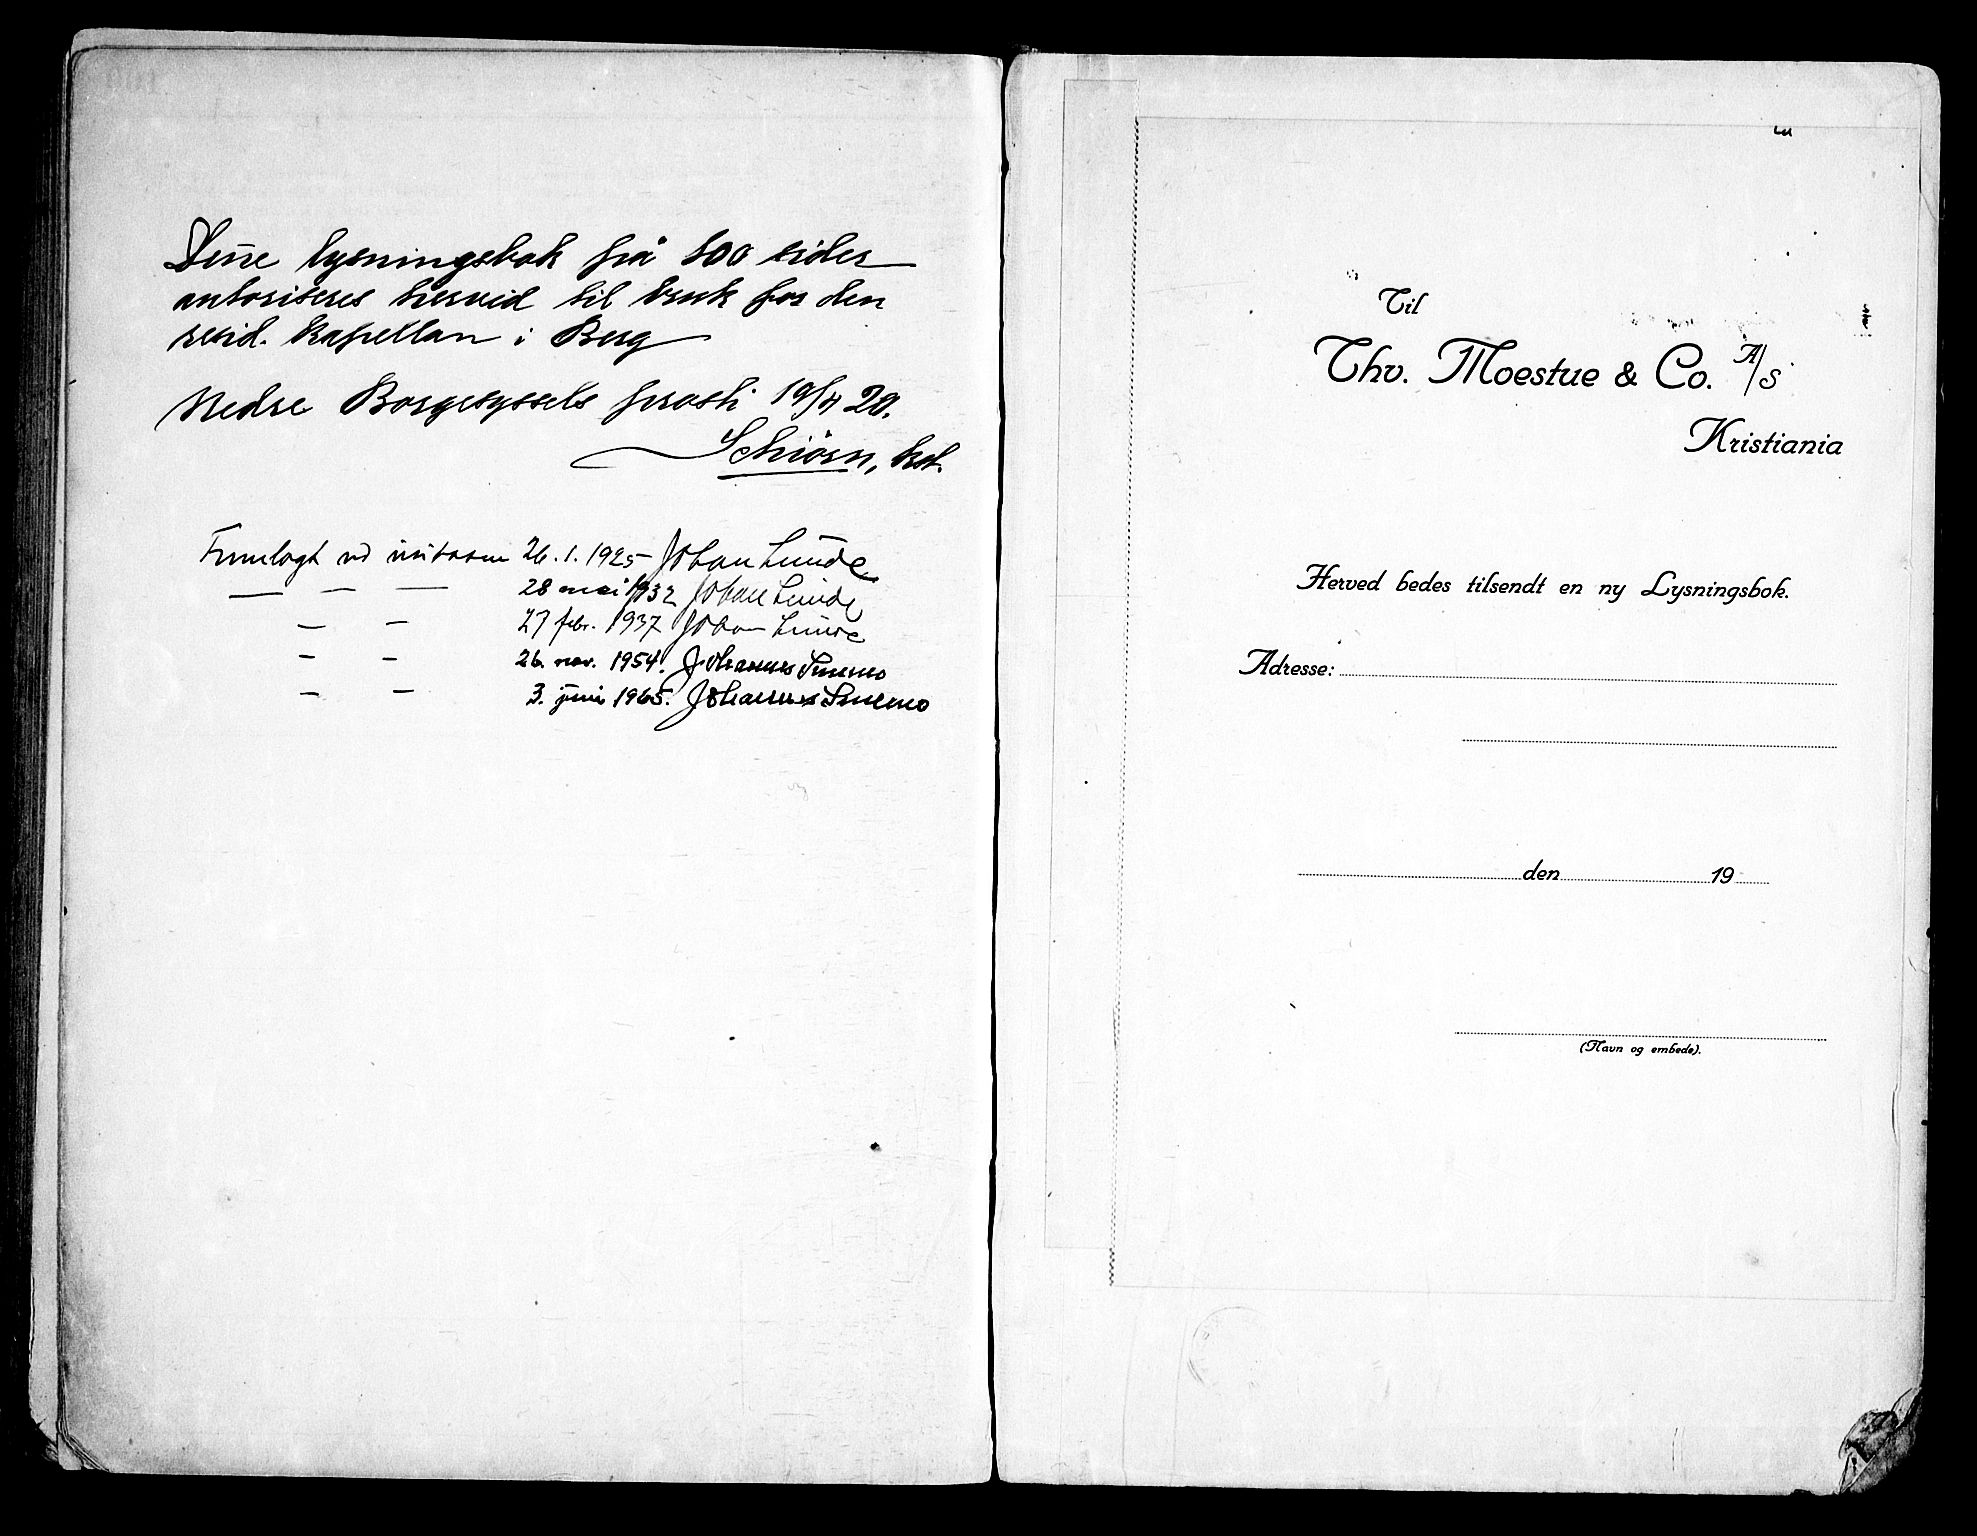 Denne lysningsbok på 100 sider
autoriseres herved til bruk for den
resid. kapellan i Berg
Nedre Borgesyssels prosti 19/4 20.
Schiørn, kst.
Fremlagt ved visitasen 26.1.1925 Johan Lunde
— — — 28 mai 1932 Johan Lunde
— — 27 febr. 1937 Johan Lunde
— — 26. nov. 1954. Johannes Smemo
— — 3. juni 1965. Johannes Smemo
Til
Thv. Moestue & Co. A/S
Kristiania
Herved bedes tilsendt en ny Lysningsbok.
Adresse:
den 19
(Navn og embede).